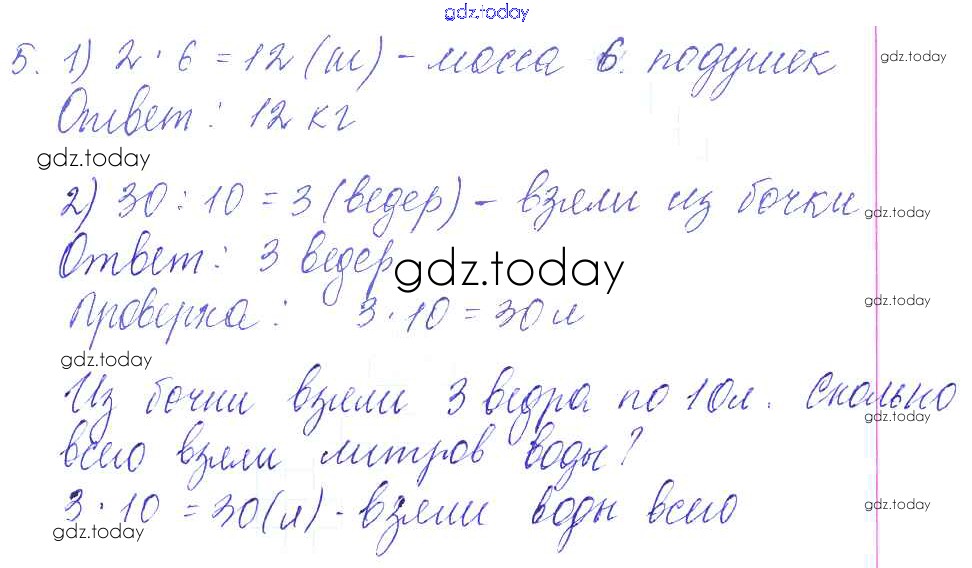 gdz.today
5. 1) 2 · 6 = 12 (кг) - масса 6 подушек
gdz.today
Ответ: 12 кг
gdz.today
2) 30 : 10 = 3 (ведер) - взяли из бочки
gdz.today
Ответ: 3 ведер
gdz.today
Проверка: 3 · 10 = 30 л
gdz.today
gdz.today
Из бочки взяли 3 ведра по 10 л. Сколько
gdz.today
всего взяли литров воды?
3 · 10 = 30 (л) - взяли воды всего
gdz.today
gdz.today